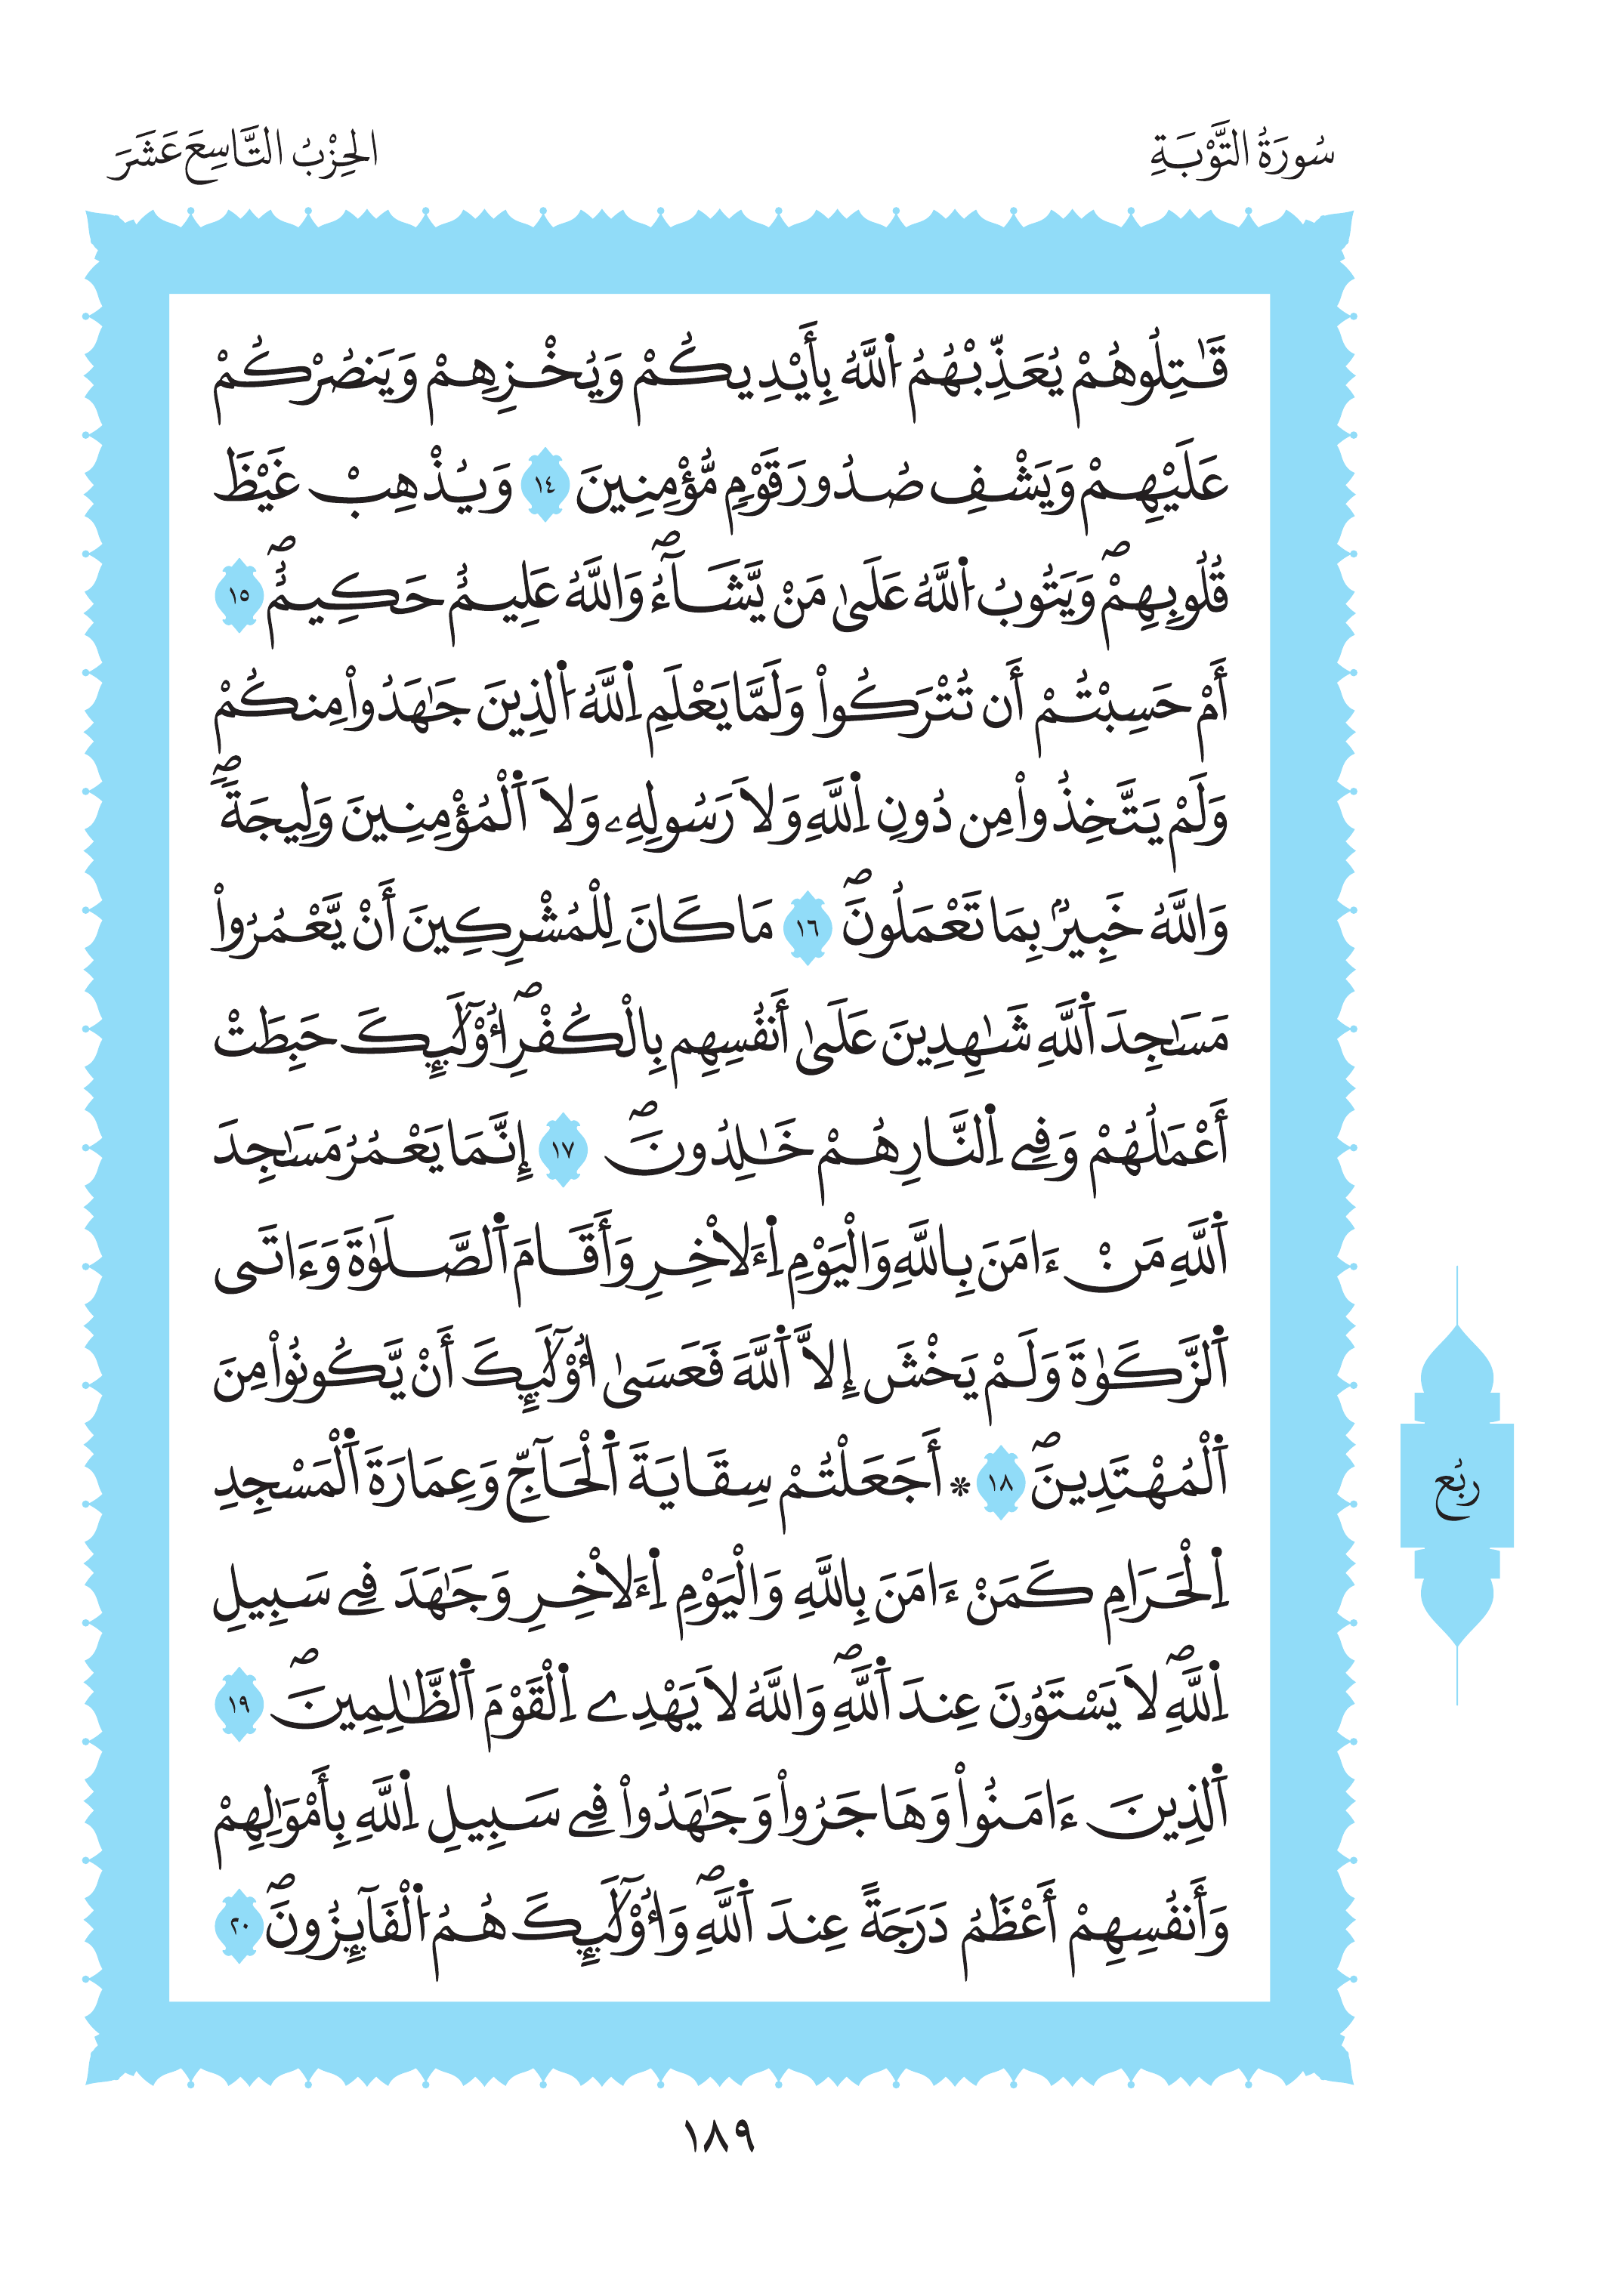 سُورَةُ التَّوْبَةِ
الحِزْبُ التَّاسِعَ عَشَرَ
قَٰتِلُوهُمْ يُعَذِّبْهُمُ اُ۬للَّهُ بِأَيْدِيكُمْ وَيُخْزِهِمْ وَيَنصُرْكُمْ
عَلَيْهِمْ وَيَشْفِ صُدُورَ قَوْمٖ مُّؤْمِنِينَ ١٤ وَيُذْهِبْ غَيْظَ
قُلُوبِهِمْۖ وَيَتُوبُ اُ۬للَّهُ عَلَىٰ مَنْ يَّشَآءُۖ وَاللَّهُ عَلِيمٌ حَكِيمٌۖ ١٥
أَمْ حَسِبْتُمْ أَن تُتْرَكُواْ وَلَمَّا يَعْلَمِ اِ۬للَّهُ اُ۬لذِينَ جَٰهَدُواْ مِنكُمْ
وَلَمْ يَتَّخِذُواْ مِن دُونِ اِ۬للَّهِ وَلَا رَسُولِهِۦ وَلَا اَ۬لْمُؤْمِنِينَ وَلِيجَةٗۖ
وَاللَّهُ خَبِيرُۢ بِمَا تَعْمَلُونَۖ ١٦ مَا كَانَ لِلْمُشْرِكِينَ أَنْ يَّعْمُرُواْ
مَسَٰجِدَ اَ۬للَّهِ شَٰهِدِينَ عَلَىٰ أَنفُسِهِم بِالْكُفْرِۖ أُوْلَٰٓئِكَ حَبِطَتْ
أَعْمَٰلُهُمْ وَفِے اِ۬لنَّارِ هُمْ خَٰلِدُونَۖ ١٧ إِنَّمَا يَعْمُرُ مَسَٰجِدَ
اَ۬للَّهِ مَنْ ءَامَنَ بِاللَّهِ وَالْيَوْمِ اِ۬ءَلَاخِرِ وَأَقَامَ اَ۬لصَّلَوٰةَ وَءَاتَى
اَ۬لزَّكَوٰةَ وَلَمْ يَخْشَ إِلَّا اَ۬للَّهَ فَعَسَىٰ أُوْلَٰٓئِكَ أَنْ يَّكُونُواْ مِنَ
اَ۬لْمُهْتَدِينَۖ ١٨ * أَجَعَلْتُمْ سِقَايَةَ اَ۬لْحَآجِّ وَعِمَارَةَ اَ۬لْمَسْجِدِ
اِ۬لْحَرَامِ كَمَنْ ءَامَنَ بِاللَّهِ وَالْيَوْمِ اِ۬ءَلَاخِرِ وَجَٰهَدَ فِے سَبِيلِ
اِ۬للَّهِۖ لَا يَسْتَوُۥنَ عِندَ اَ۬للَّهِۖ وَاللَّهُ لَا يَهْدِے اِ۬لْقَوْمَ اَ۬لظَّٰلِمِينَۖ ١٩
اَ۬لذِينَ ءَامَنُواْ وَهَاجَرُواْ وَجَٰهَدُواْ فِے سَبِيلِ اِ۬للَّهِ بِأَمْوَٰلِهِمْ
وَأَنفُسِهِمْ أَعْظَمُ دَرَجَةً عِندَ اَ۬للَّهِۖ وَأُوْلَٰٓئِكَ هُمُ اُ۬لْفَآئِزُونَۖ ٢٠
ربُع
١٨٩